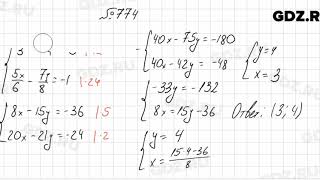 №774
GDZ.R
5x/6 - 7y/8 = -1 | ·24
8x - 15y = -36 | ·5
20x - 21y = -24 | ·2
40x - 75y = -180
40x - 42y = -48
-33y = -132
8x = 15y - 36
y = 4
x = (15·4-36)/8
y = 4
x = 3
Ответ: (3; 4)
GDZ.RU